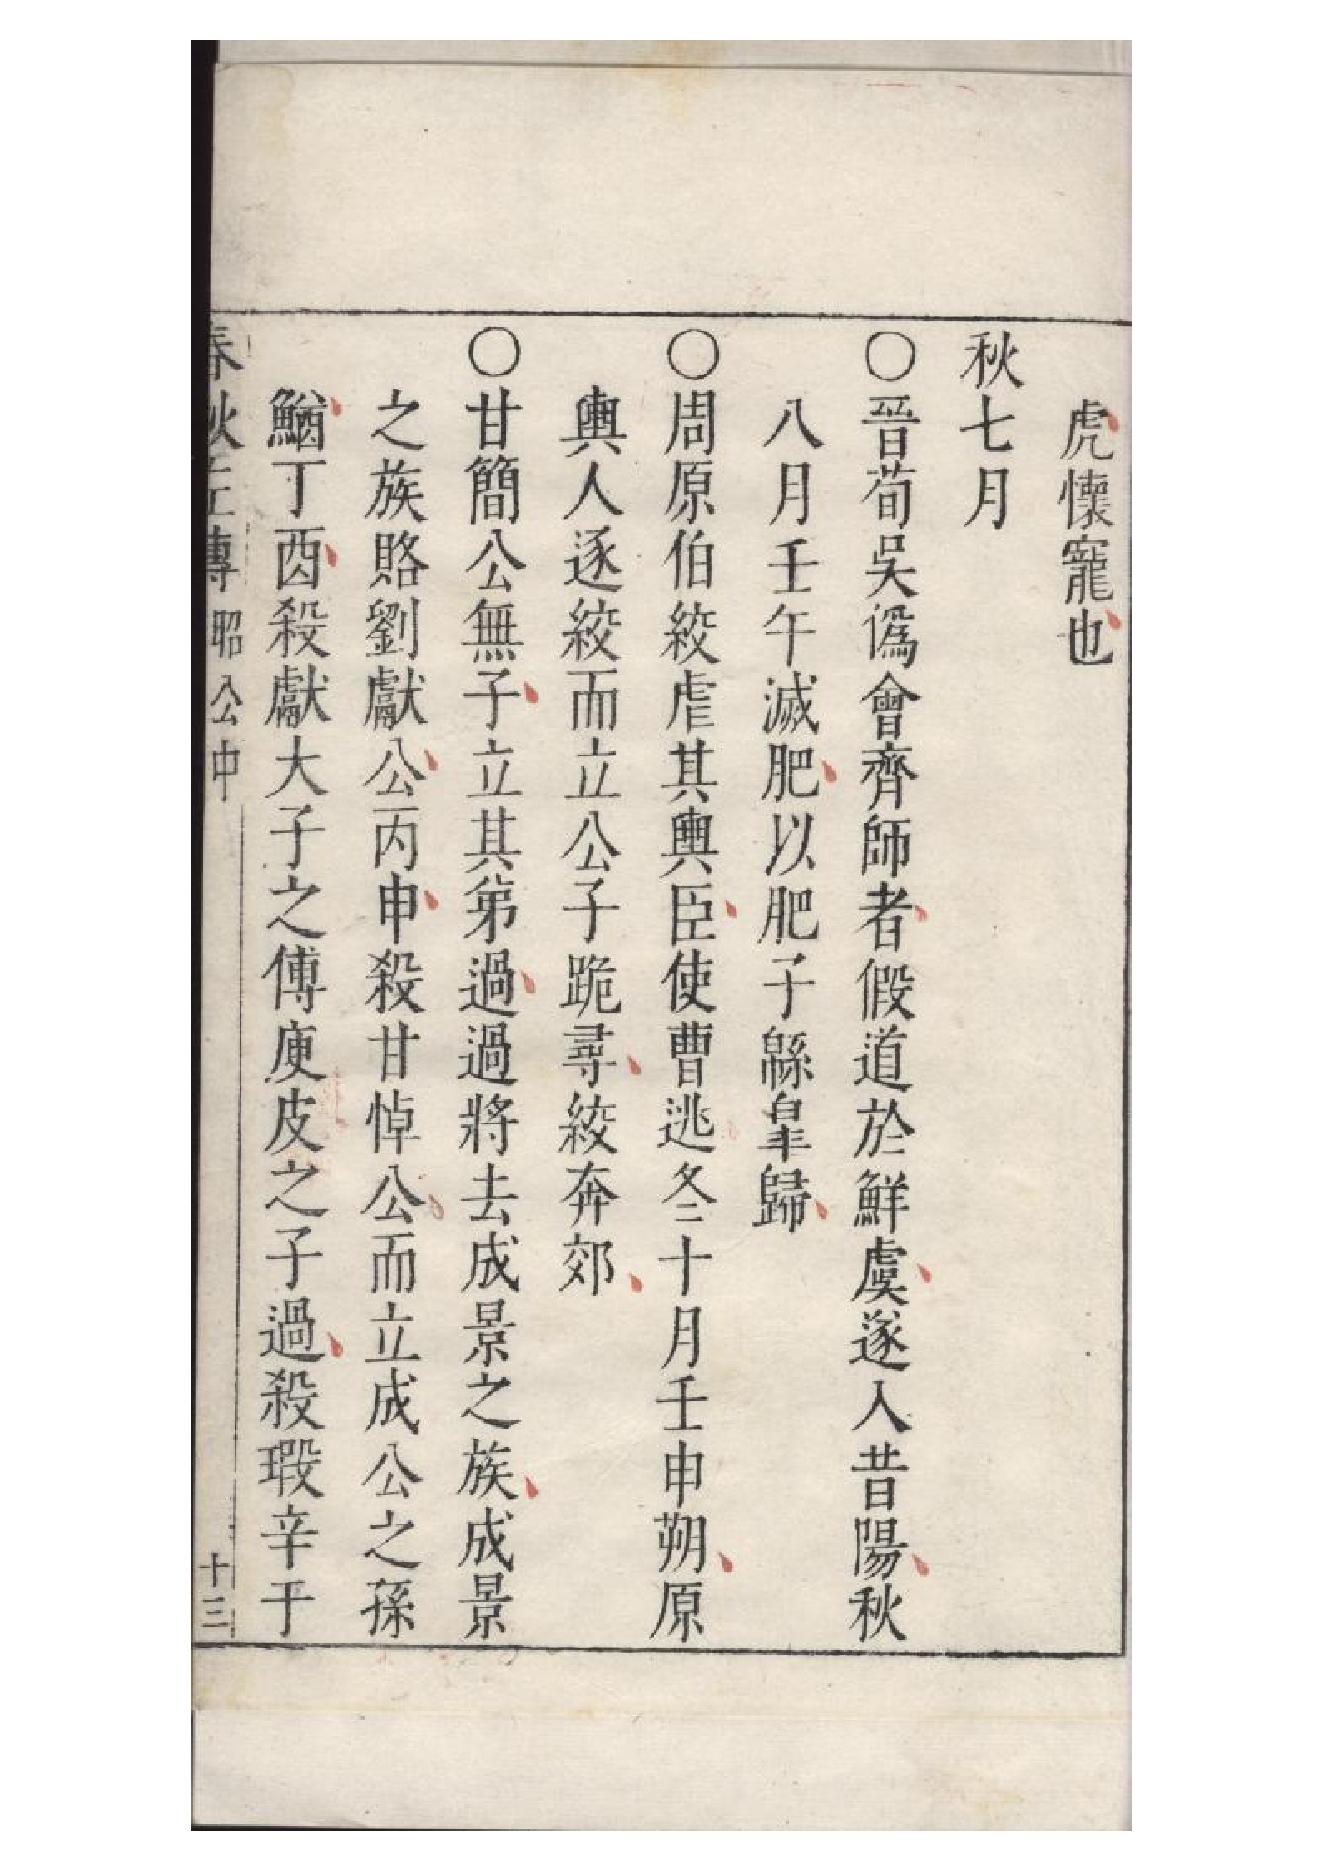 虎懷寵也
秋七月
○晉荀吳僞會齊師者假道於鮮虞遂入昔陽秋
八月壬午滅肥以肥子緜臯歸
○周原伯絞虐其輿臣使曹逃冬十月壬申朔原
輿人逐絞而立公子跪尋絞奔郊
○甘簡公無子立其弟過過將去成景之族成景
之族賂劉獻公丙申殺甘悼公而立成公之孫
鰌丁酉殺獻大子之傅庾皮之子過殺瑕辛于
春秋左傳 昭公中 十三